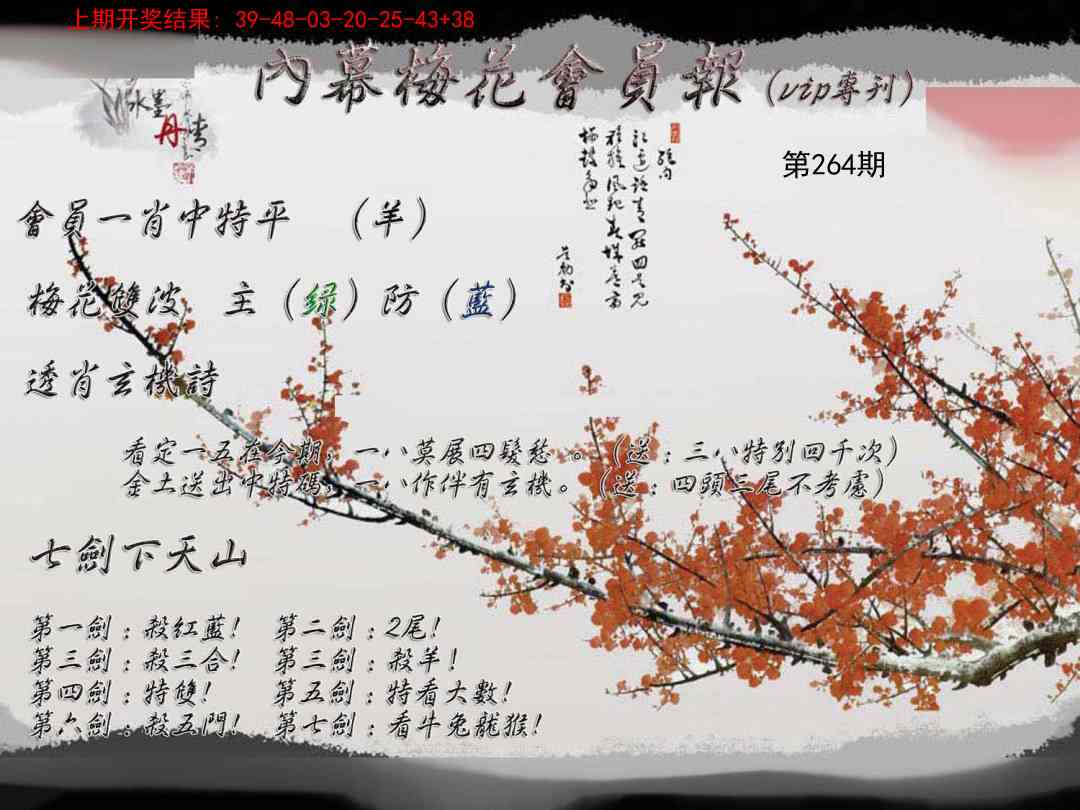 上期开奖结果: 39-48-03-20-25-43+38
內幕梅花會員報(vip專刊)
水墨
丹青
第264期
會員一肖中特平 (羊)
梅花雙波 主(绿)防(藍)
透肖玄機詩
看定一五在今期,一八莫展四鬢愁。(送:三八特别四千次)
金土送出中特碼,一八作伴有玄機。(送:四頭三尾不考慮)
七劍下天山
第一劍:殺红藍! 第二劍:2尾!
第三劍:殺三合! 第三劍:殺羊!
第四劍:特雙! 第五劍:特看大數!
第六劍:殺五門! 第七劍:看牛兔龍猴!